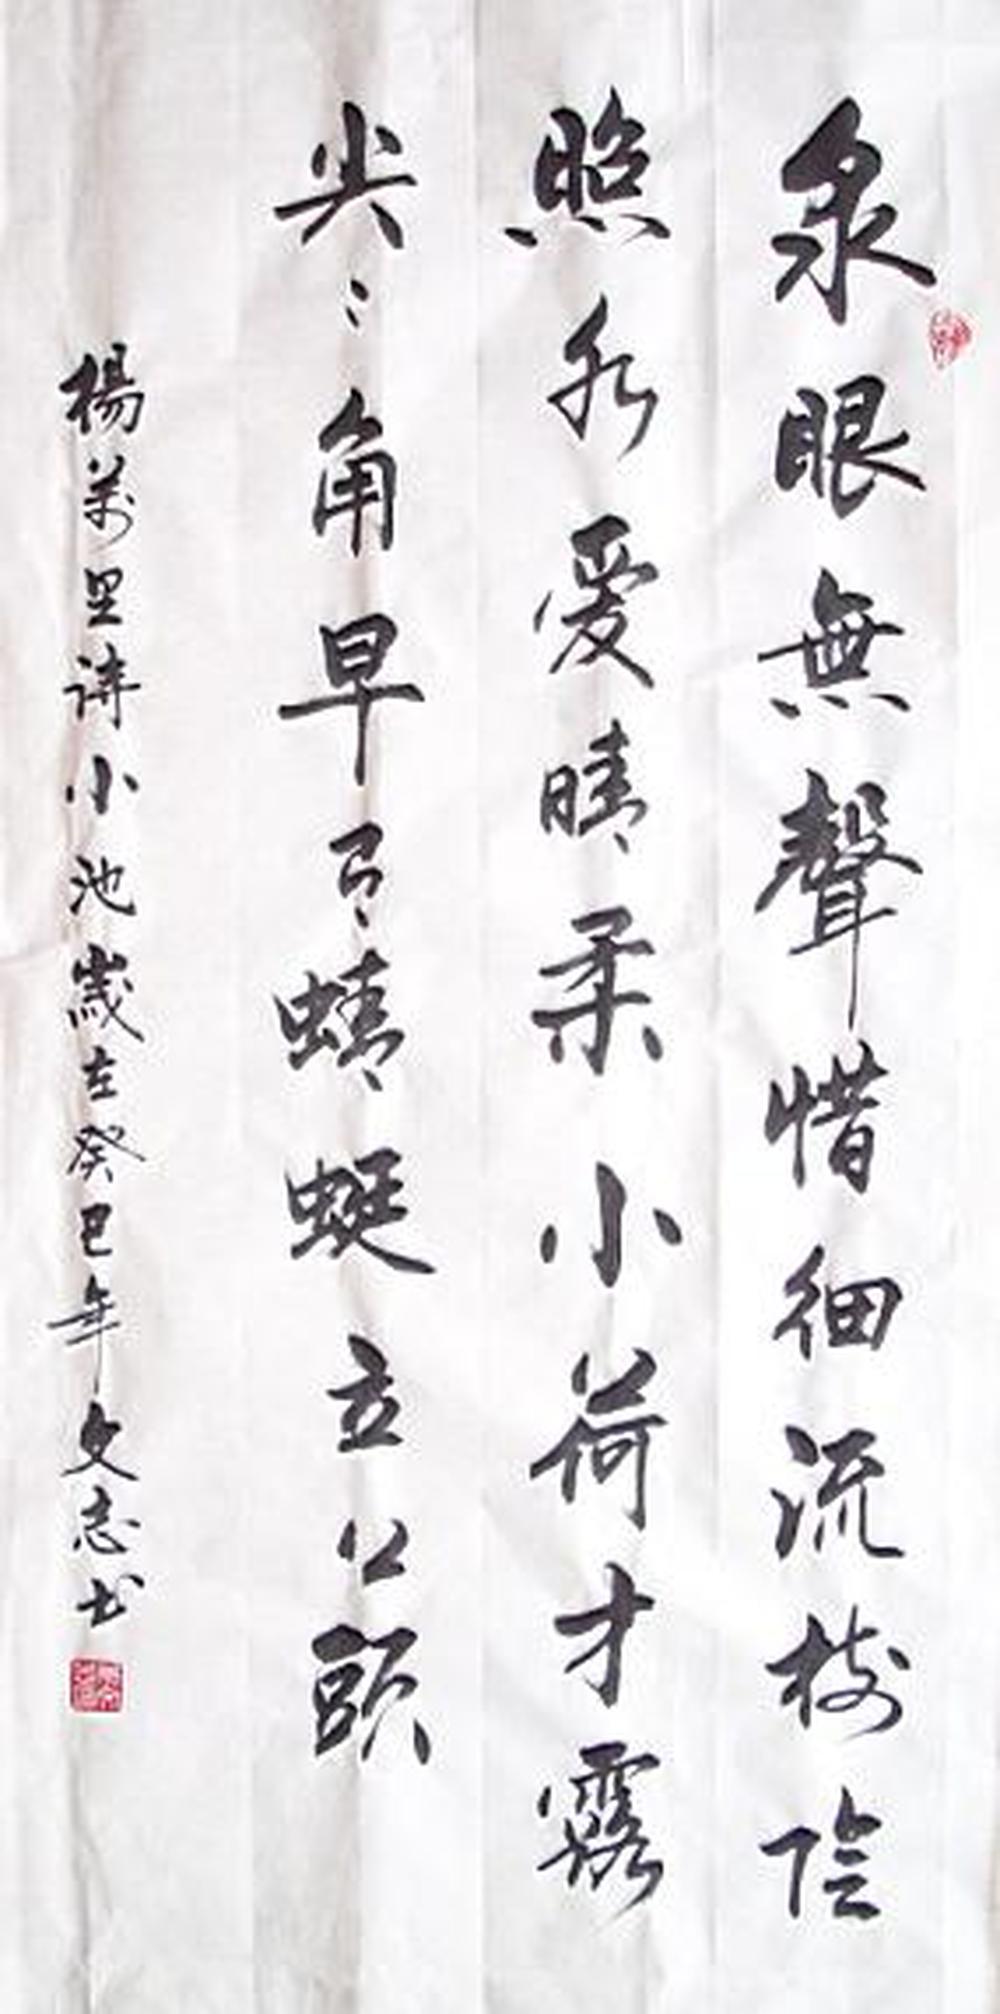 泉眼無聲惜細流樹陰
照水愛晴柔小荷才露
尖〻角早有蜻蜓立上頭
楊萬里詩小池歲在癸巳年文志书